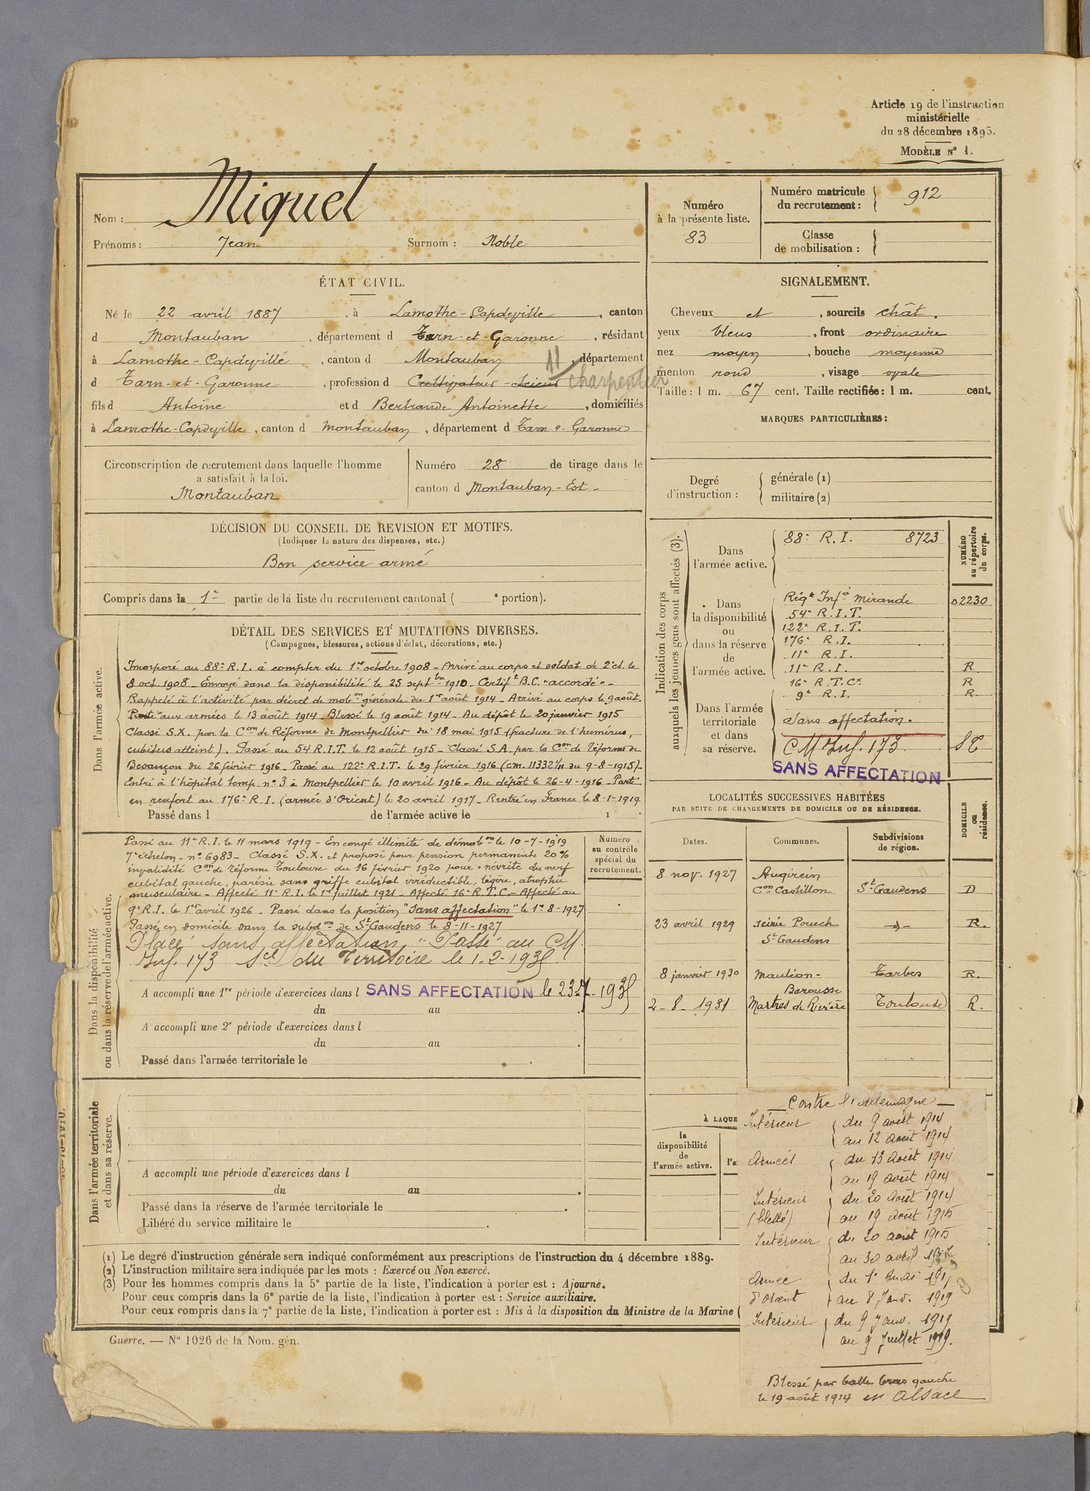 Article 19 de l'instruction
ministérielle
du 28 décembre 1895.
MODÈLE N° 1.
Nom : Miquel
Prénoms : Jean Surnom : Noble
Numéro
à la présente liste.
83
Numéro matricule
du recrutement : 912
Classe
de mobilisation :
ÉTAT CIVIL.
Né le 22 avril 1887, à Lamothe-Capdeville, canton
d Montauban, département d Tarn-et-Garonne, résidant
à Lamothe-Capdeville, canton d Montauban, département
d Tarn-et-Garonne, profession d Cultivateur-Scieur charpentier
fils d Antoine et d Bertrande Antoinette, domiciliés
à Lamothe-Capdeville, canton d Montauban, département d Tarn-&-Garonne
SIGNALEMENT.
Cheveux et, sourcils chât.
yeux bleus, front ordinaire
nez moyen, bouche moyenne
menton rond, visage ovale
Taille : 1 m. 67 cent. Taille rectifiée : 1 m. cent.
MARQUES PARTICULIÈRES :
Circonscription de recrutement dans laquelle l'homme
a satisfait à la loi.
Montauban
Numéro 28 de tirage dans le
canton d Montauban-Est-
Degré
d'instruction :
générale (1)
militaire (2)
DÉCISION DU CONSEIL DE REVISION ET MOTIFS.
(Indiquer la nature des dispenses, etc.)
Bon service armé
Compris dans la 1re partie de la liste du recrutement cantonal ( e portion).
Indication des corps
auxquels les jeunes gens sont affectés (3).
NUMÉRO
au répertoire
du corps.
Dans
l'armée active.
88e R.I. 8723
Dans
la disponibilité
ou
dans la réserve
de
l'armée active.
Régt Infie Mirande 02230
54e R.I.T.
122e R.I.T.
176e R.I.
11e R.I.
11e R.I. R
16e R.T.C. R
9e R.I. R
Dans l'armée
territoriale
et dans
sa réserve.
Sans affectation.
CM Inf. 173
SANS AFFECTATION
DÉTAIL DES SERVICES ET MUTATIONS DIVERSES.
(Campagnes, blessures, actions d'éclat, décorations, etc.)
Dans l'armée active.
Incorporé au 88e R.I. à compter du 1er octobre 1908 - Arrivé au corps et soldat de 2e cl. le
8 oct. 1908 - Envoyé dans la disponibilité le 25 septbre 1910. Certift B.C. "accordé" -
Rappelé à l'activité par décret de mobon générale du 1er août 1914 - Arrivé au corps le 9 août.
Parti aux armées le 13 août 1914 - Blessé le 19 août 1914 - Au dépôt le 20 janvier 1915
Classé S.X. par la Con de Réforme de Montpellier du 18 mai 1915 (fracture de l'humérus,
cubitus atteint). Passé au 54 R.I.T. le 12 août 1915 - Classé S.A. par la Con de Réforme de
Besançon du 26 février 1916 - Passé au 122e R.I.T. le 29 février 1916 (cm. 11332 1/11 du 9-8-1915) -
Entré à l'hôpital temp. n° 3 à Montpellier le 10 avril 1916 - Au dépôt le 26-4-1916 - Parti
en renfort au 176e R.I. (armée d'Orient) le 20 avril 1917 - Rentré en France le 8-1-1919
Passé dans l de l'armée active le 1
Dans la disponibilité
ou dans la réserve de l'armée active.
Numéro
au contrôle
spécial du
recrutement.
Passé au 11e R.I. le 11 mars 1919 - En congé illimité de démobon le 10-7-1919
7e échelon - n° 6983 - Classé S.X. et proposé pour pension permanente 20%
invalidité Con de réforme Toulouse du 16 février 1920 pour "névrite du nerf
cubital gauche, parésie sans griffe cubital irréductible, légère, atrophie
musculaire - Affecté 11e R.I. le 1er Juillet 1921 - Affecté 16e R.T.C. - Affecté au
9e R.I. le 1er avril 1926 - Passé dans la position "Sans affectation" le 1er-8-1927
Passé en domicile dans la subdon de St Gaudens le 8-11-1927
Placé "sans affectation" Passé au CM
Inf. 173 Sct du Territoire le 1-2-193
A accompli une 1re période d'exercices dans l SANS AFFECTATION
du au
A accompli une 2e période d'exercices dans l
du au
Passé dans l'armée territoriale le
LOCALITÉS SUCCESSIVES HABITÉES
PAR SUITE DE CHANGEMENTS DE DOMICILE OU DE RÉSIDENCE.
Dates. Communes. Subdivisions
de région.
DOMICILE
ou
résidence.
8 nov. 1927 Augirein
Con Castillon St Gaudens D
23 avril 1929 Scierie Pouech
St Gaudens -d- R.
8 janvier 1930 Mauléon-
Barousse Tarbes R.
2-8-1931 Martres de Rivière Toulouse R.
Dans l'armée territoriale
et dans sa réserve.
A accompli une période d'exercices dans l
du au
Passé dans la réserve de l'armée territoriale le
Libéré du service militaire le
À LAQUE
la
disponibilité
de
l'armée active.
l'a
Contre l'Allemagne
Intérieur du 9 août 1914
au 12 août 1914
Armées du 13 août 1914
au 19 août 1914
Intérieur du 20 août 1914
(blessé) au 19 août 1915
Intérieur du 20 août 1915
au 30 avril
Armée du 1er mai 191
d'Orient au 8 Janv. 1919
Intérieur du 9 Janv. 1919
au 9 Juillet 1919.
Blessé par balle bras gauche
le 19 août 1914 en Alsace
(1) Le degré d'instruction générale sera indiqué conformément aux prescriptions de l'instruction du 4 décembre 1889.
(2) L'instruction militaire sera indiquée par les mots : Exercé ou Non exercé.
(3) Pour les hommes compris dans la 5e partie de la liste, l'indication à porter est : Ajourné.
Pour ceux compris dans la 6e partie de la liste, l'indication à porter est : Service auxiliaire.
Pour ceux compris dans la 7e partie de la liste, l'indication à porter est : Mis à la disposition du Ministre de la Marine (
Guerre. — N° 1026 de la Nom. gén.